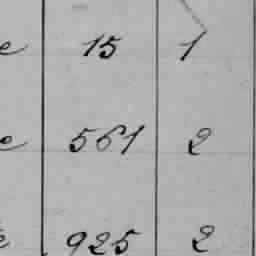 e 15 1
e 561 2
e 925 2